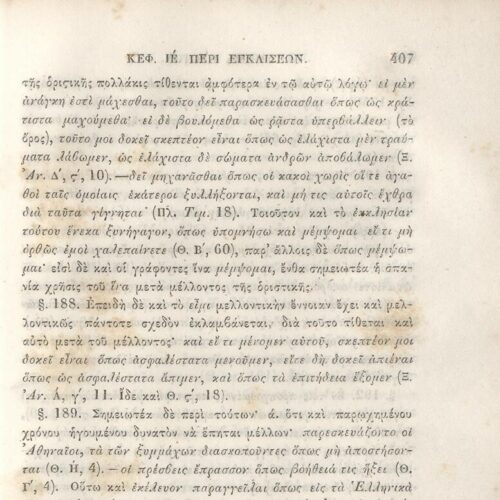 ΚΕΦ. ΙΕ΄. ΠΕΡΙ ΕΓΚΛΙΣΕΩΝ. 407
τῆς ὁριστικῆς πολλάκις τίθενται ἀμφότερα ἐν τῷ αὐτῷ λόγῳ· εἰ μὲν
ἀνάγκη ἐστὶ μάχεσθαι, τοῦτο δεῖ παρασκευάσασθαι ὅπως ὡς κρά-
τιστα μαχούμεθα· εἰ δὲ βουλόμεθα ὡς ῥᾷστα ὑπερβάλλειν (τὸ
ὄρος), τοῦτό μοι δοκεῖ σκεπτέον εἶναι ὅπως ὡς ἐλάχιστα μὲν τραύ-
ματα λάβωμεν, ὡς ἐλάχιστα δὲ σώματα ἀνδρῶν ἀποβάλωμεν (Ξ.
Ἀν. Δ΄, ς΄, 10).—δεῖ μηχανᾶσθαι ὅπως οἱ κακοὶ χωρὶς οἵ τε ἀγα-
θοὶ ταῖς ὁμοίαις ἑκάτεροι ξυλλήξονται, καὶ μή τις αὐτοῖς ἔχθρα
διὰ ταῦτα γίγνηται (Πλ. Τιμ. 18). Τοιοῦτον καὶ τὸ ἐκκλησίαν
τούτου ἕνεκα ξυνήγαγον, ὅπως ὑπομνήσω καὶ μέμψομαι εἴ τι μὴ
ὀρθῶς ἐμοὶ χαλεπαίνετε (Θ. Β΄, 60), παρ' ἄλλοις δὲ ὅπως μέμψω-
μαι· εἰσὶ δὲ καὶ οἱ γράφοντες ἵνα μέμψομαι, ἔνθα σημειωτέα ἡ σπα-
νία χρῆσις τοῦ ἵνα μετὰ μέλλοντος τῆς ὁριστικῆς.
§. 188. Ἐπειδὴ δὲ καὶ τὸ εἶμι μελλοντικὴν ἔννοιαν ἔχει καὶ μελ-
λοντικῶς πάντοτε σχεδὸν ἐκλαμβάνεται, διὰ τοῦτο τίθεται καὶ
αὐτὸ μετὰ τοῦ μέλλοντος· καὶ εἴ τι μένομεν αὐτοῦ, σκεπτέον μοι
δοκεῖ εἶναι ὅπως ἀσφαλέστατα μενοῦμεν, εἴτε δὴ δοκεῖ ἀπιέναι
ὅπως ὡς ἀσφαλέστατα ἄπιμεν, καὶ ὅπως τὰ ἐπιτήδεια ἕξομεν (Ξ.
Ἀν. Α, γ΄, 11. Ἴδε καὶ Θ. ς΄, 18).
§. 189. Σημειωτέα δὲ περὶ τούτων· ά. ὅτι καὶ παρῳχημένου
χρόνου ἡγουμένου δυνατὸν νὰ ἕπηται μέλλων· παρεσκευάζοντο οἱ
Ἀθηναῖοι, τὰ τῶν ξυμμάχων διασκοποῦντες ὅπως μὴ ἀποστήσον-
ται (Θ. Η, 4).—οἱ πρέσβεις ἔπρασσον ὅπως βοήθειά τις ἥξει (Θ.
Γ΄, 4). Οὕτω καὶ ἐκέλευον παραγγεῖλαι ὅπως εἰς τὰ Ἑλληνικὰ